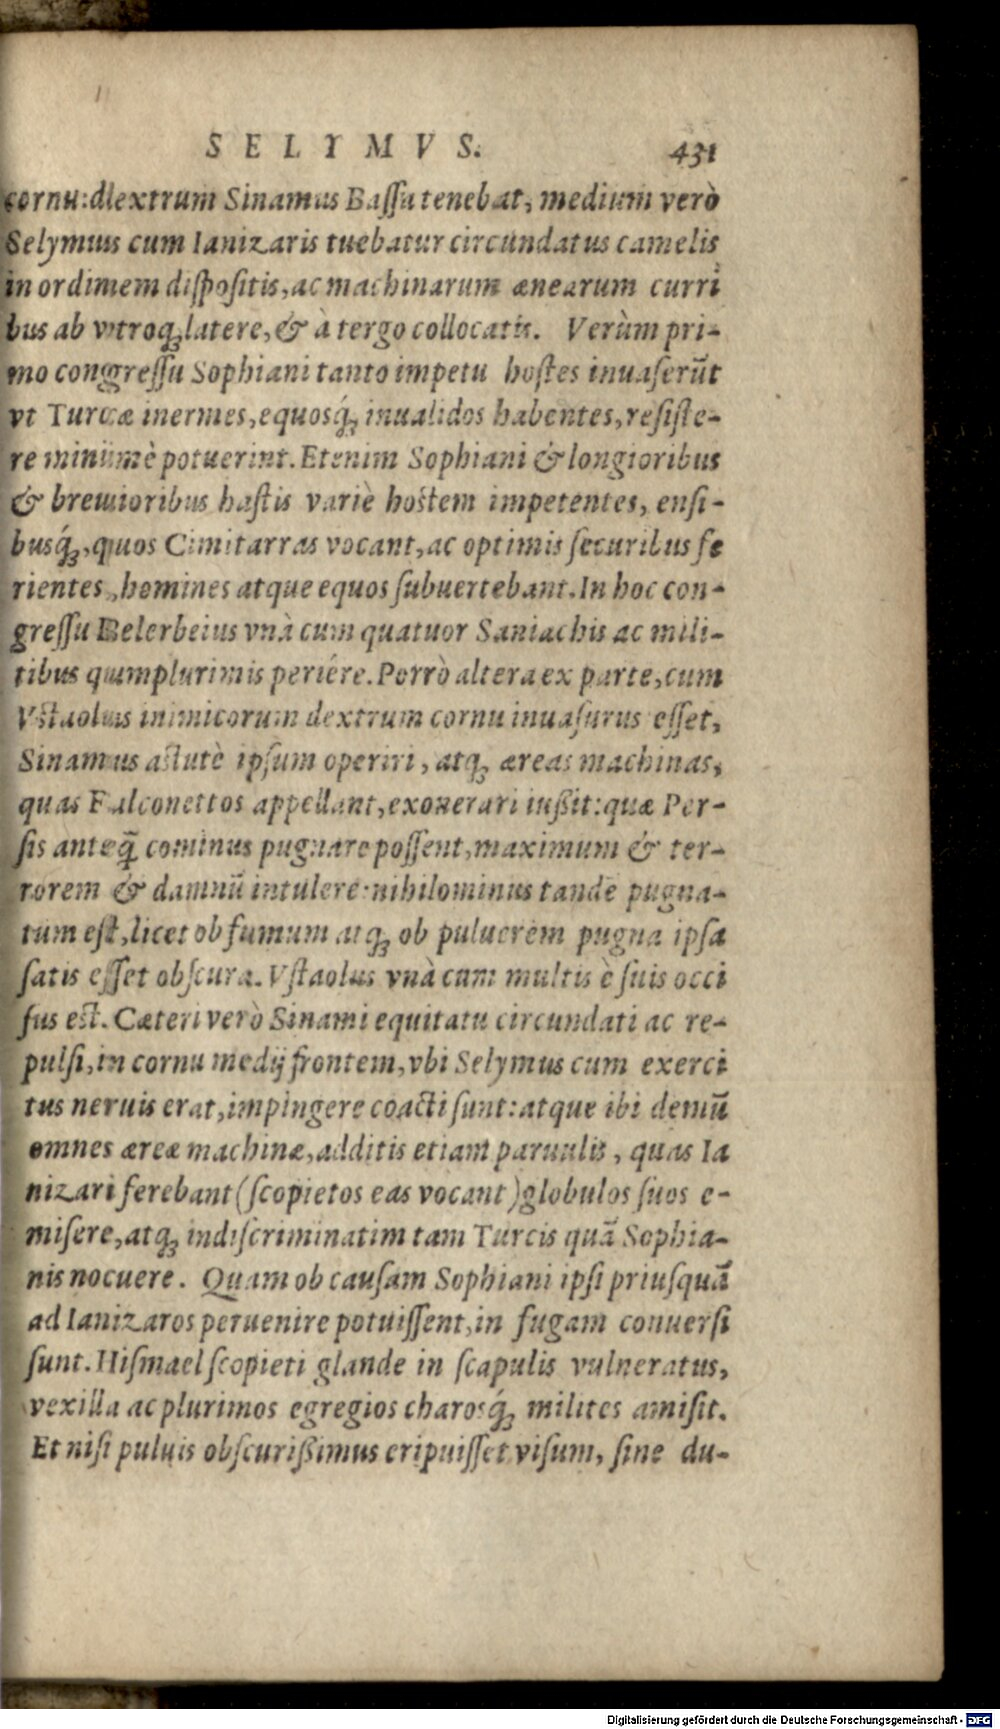 SELYMVS. 431
cornu: dextrum Sinamus Bassa tenebat, medium verò
Selymus cum Ianizaris tuebatur circundatus camelis
in ordinem dispositis, ac machinarum ænearum curri
bus ab vtroq; latere, & à tergo collocatis. Verùm pri-
mo congressu Sophiani tanto impetu hostes inuaserūt
vt Turcæ inermes, equosq́; inualidos habentes, resiste-
re minimè potuerint. Etenim Sophiani & longioribus
& breuioribus hastis variè hostem impetentes, ensi-
busq́;, quos Cimitarras vocant, ac optimis securibus fe
rientes, homines atque equos subuertebant. In hoc con-
gressu Belerbeius vnà cum quatuor Saniachis ac mili-
tibus qumplurimis periére. Porrò altera ex parte, cum
Vstaolus inimicorum dextrum cornu inuasurus esset,
Sinamus astutè ipsum operiri, atq; æreas machinas,
quas Falconettos appellant, exonerari iußit: quæ Per-
sis anteq̄ cominus pugnare possent, maximum & ter-
rorem & damnū intulere: nihilominus tandē pugna-
tum est, licet ob fumum atq; ob puluerem pugna ipsa
satis esset obscura. Vstaolus vnà cum multis è suis occi
sus est. Cæteri verò Sinami equitatu circundati ac re-
pulsi, in cornu medij frontem, vbi Selymus cum exerci
tus neruis erat, impingere coacti sunt: atque ibi demū
omnes æreæ machinæ, additis etiam paruulis, quas Ia
nizari ferebant (scopietos eas vocant) globulos suos e-
misere, atq; indiscriminatim tam Turcis quā Sophia-
nis nocuere. Quam ob causam Sophiani ipsi priusquā
ad Ianizaros peruenire potuissent, in fugam conuersi
sunt. Hismael scopieti glande in scapulis vulneratus,
vexilla ac plurimos egregios charosq́; milites amisit.
Et nisi puluis obscurißimus eripuisset visum, sine du-
Digitalisierung gefördert durch die Deutsche Forschungsgemeinschaft - DFG